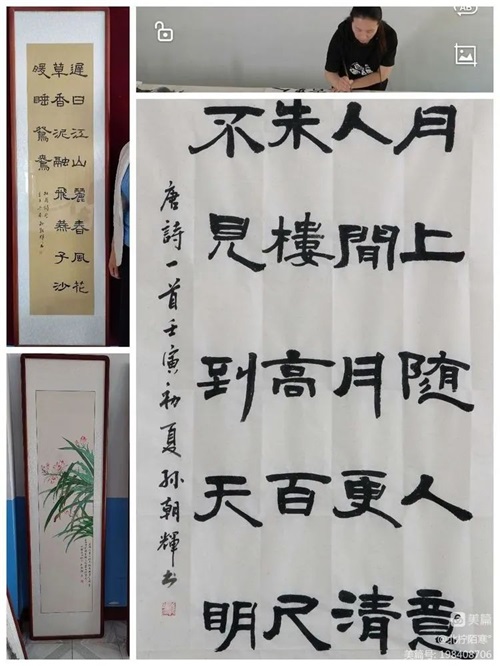 遲日江山麗春風花
草香泥融飛燕子沙
暖睡鴛鴦
月上随人意
人閒月更清
朱樓高百尺
不見到天明
唐詩一首壬寅初夏孫朝輝书
美篇
美篇号: 198408706